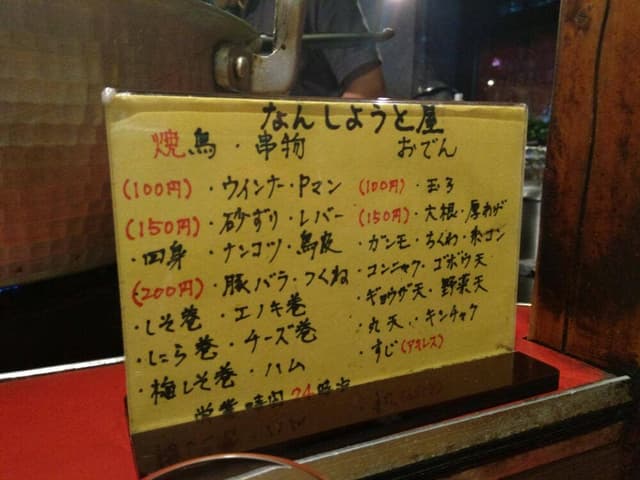 なんしようと屋
焼鳥・串物
(100円)・ウインナー・Pマン
(150円)・砂ずり・レバー
・四身・ナンコツ・鳥皮
(200円)・豚バラ・つくね
・しそ巻・エノキ巻
・にら巻・チーズ巻
・梅しそ巻・ハム
おでん
(100円)・玉子
(150円)・大根・厚あげ
・ガンモ・ちくわ・糸コン
・コンニャク・ゴボウ天
・ギョウザ天・野菜天
・丸天・キンチャク
・すじ(アキレス)
営業時間24時迄